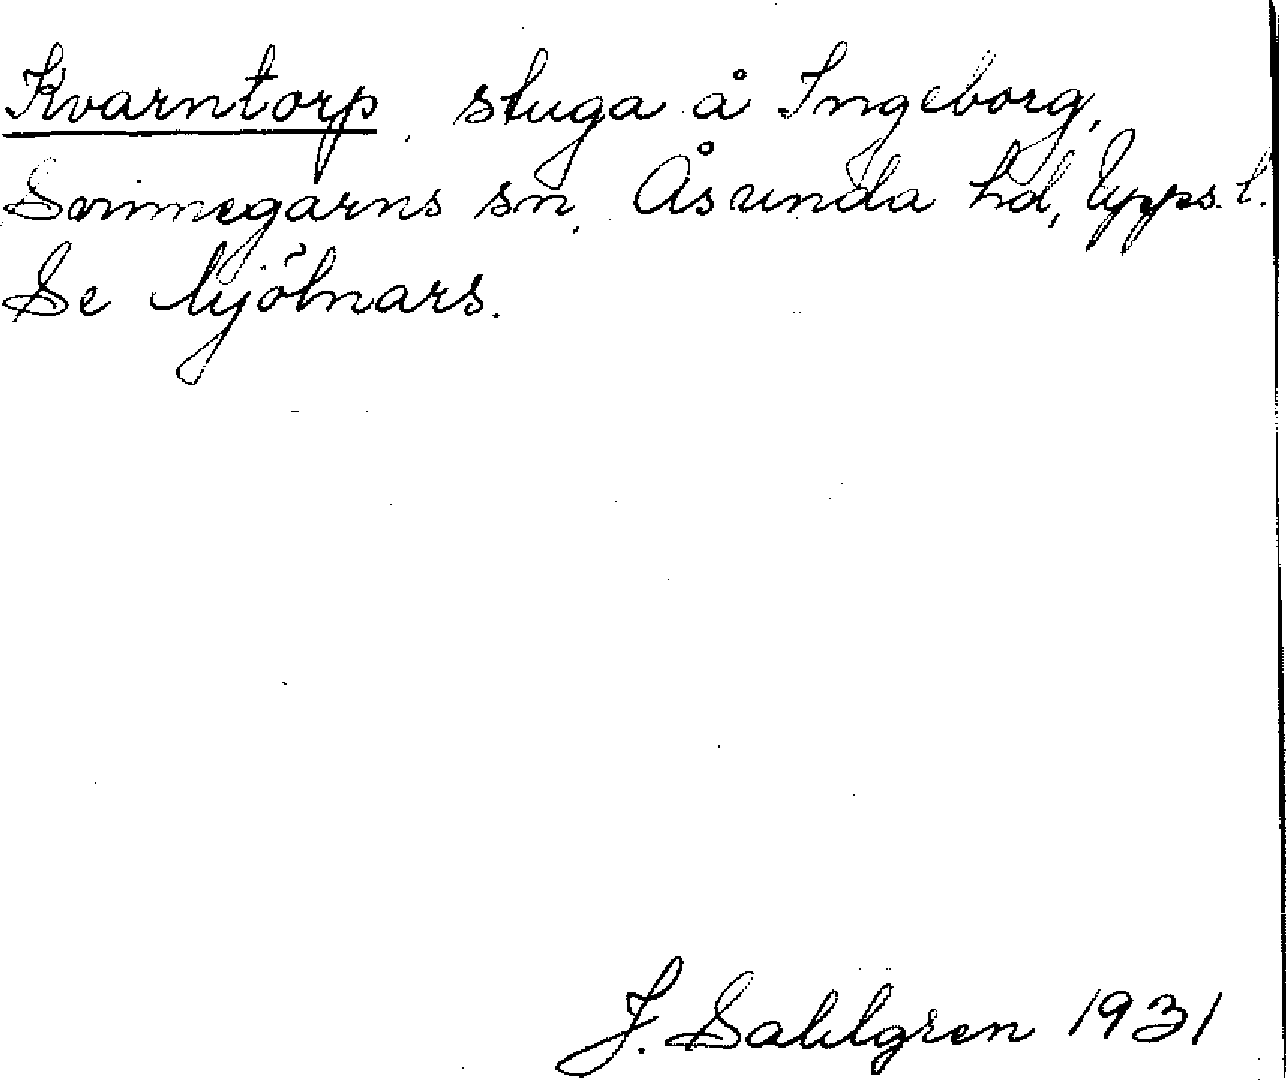 Kvarntorp, stuga å Ingeborg,
Svinnegarns sn, Åsunda hd, Upps. l.
Se Mjölnars.
J. Sahlgren 1931